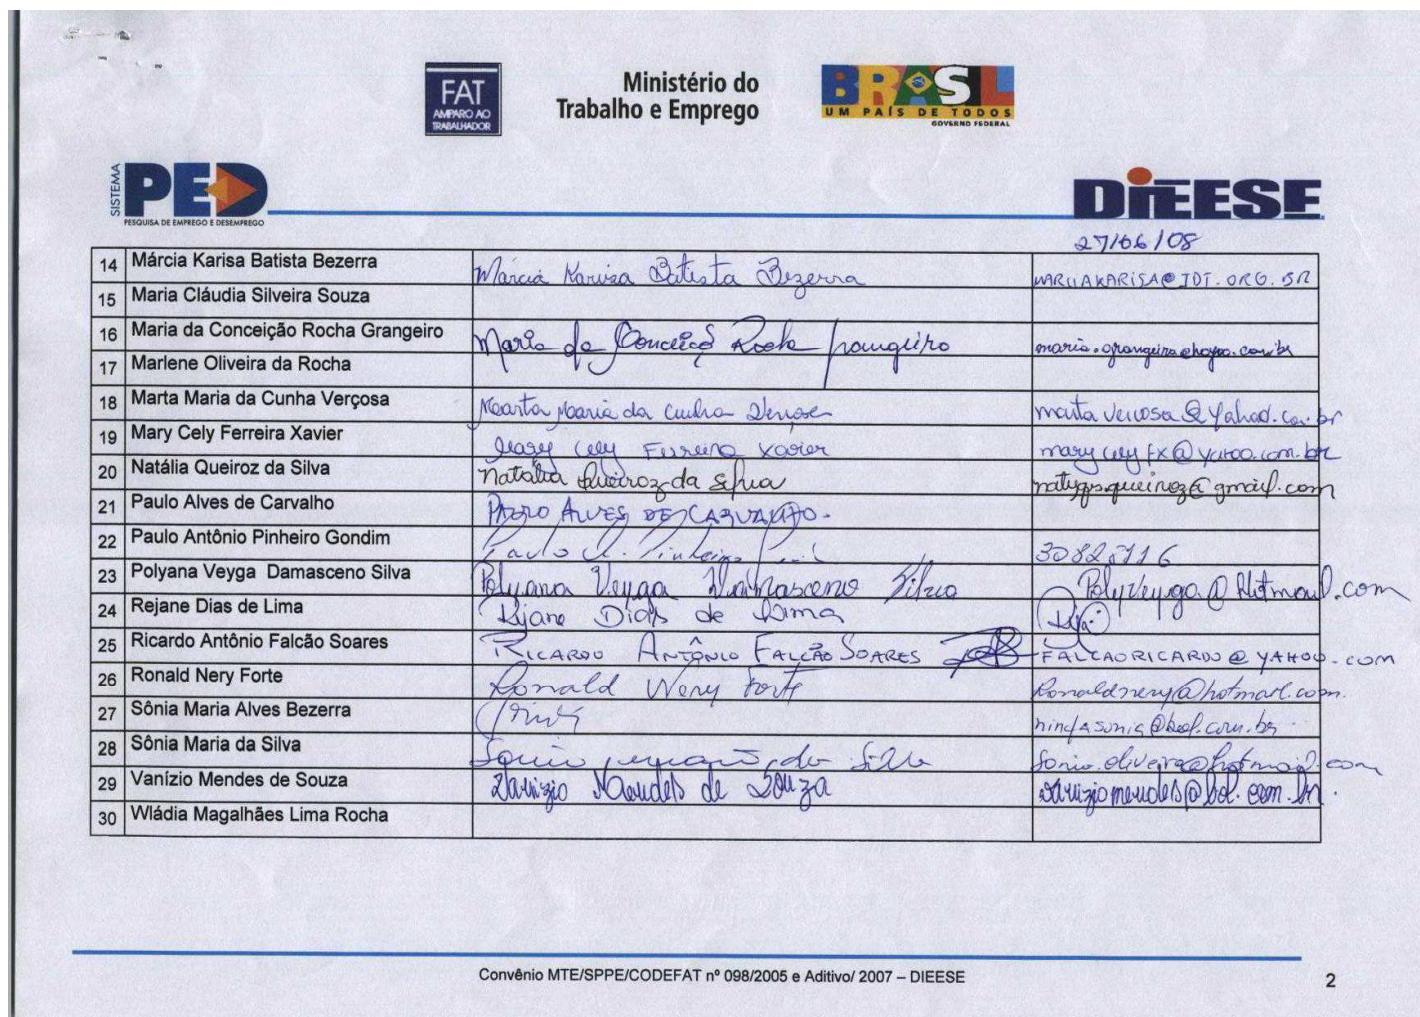 FAT
AMPARO AO
TRABALHADOR
Ministério do
Trabalho e Emprego
BRASIL
UM PAÍS DE TODOS
GOVERNO FEDERAL
SISTEMA
PED
PESQUISA DE EMPREGO E DESEMPREGO
DIEESE
27/06/08
14 Márcia Karisa Batista Bezerra Márcia Karisa Batista Bezerra MARCIAKARISA@IDT.ORG.BR
15 Maria Cláudia Silveira Souza
16 Maria da Conceição Rocha Grangeiro Maria da Rocha
17 Marlene Oliveira da Rocha
18 Marta Maria da Cunha Verçosa Marta Maria da Cunha
19 Mary Cely Ferreira Xavier Mary Cely Ferreira Xavier
20 Natália Queiroz da Silva Natália Queiroz da Silva
21 Paulo Alves de Carvalho PAULO ALVES DE CARVALHO.
22 Paulo Antônio Pinheiro Gondim Paulo A. Pinheiro
23 Polyana Veyga Damasceno Silva Polyana Veyga Damasceno Silva Polyveyga@hotmail.com
24 Rejane Dias de Lima Rejane Dias de Lima
25 Ricardo Antônio Falcão Soares RICARDO ANTÔNIO FALCÃO SOARES FALCAORICARDO@YAHOO.COM
26 Ronald Nery Forte Ronald Nery Forte Ronaldnery@hotmail.com.
27 Sônia Maria Alves Bezerra
28 Sônia Maria da Silva Sonia Maria da Silva Sonia.oliveira@hotmail.com
29 Vanízio Mendes de Souza Vanizio Mendes de Souza vaniziomendes@bol.com.br.
30 Wládia Magalhães Lima Rocha
Convênio MTE/SPPE/CODEFAT nº 098/2005 e Aditivo/ 2007 – DIEESE
2